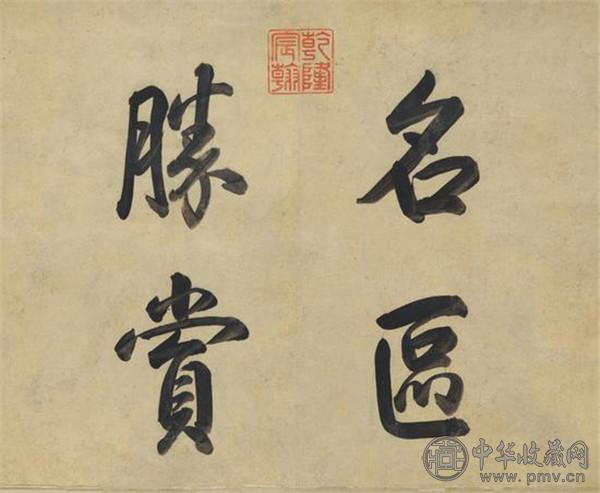 名區
勝賞
乾隆宸翰
中华收藏网
www.pmv.cn